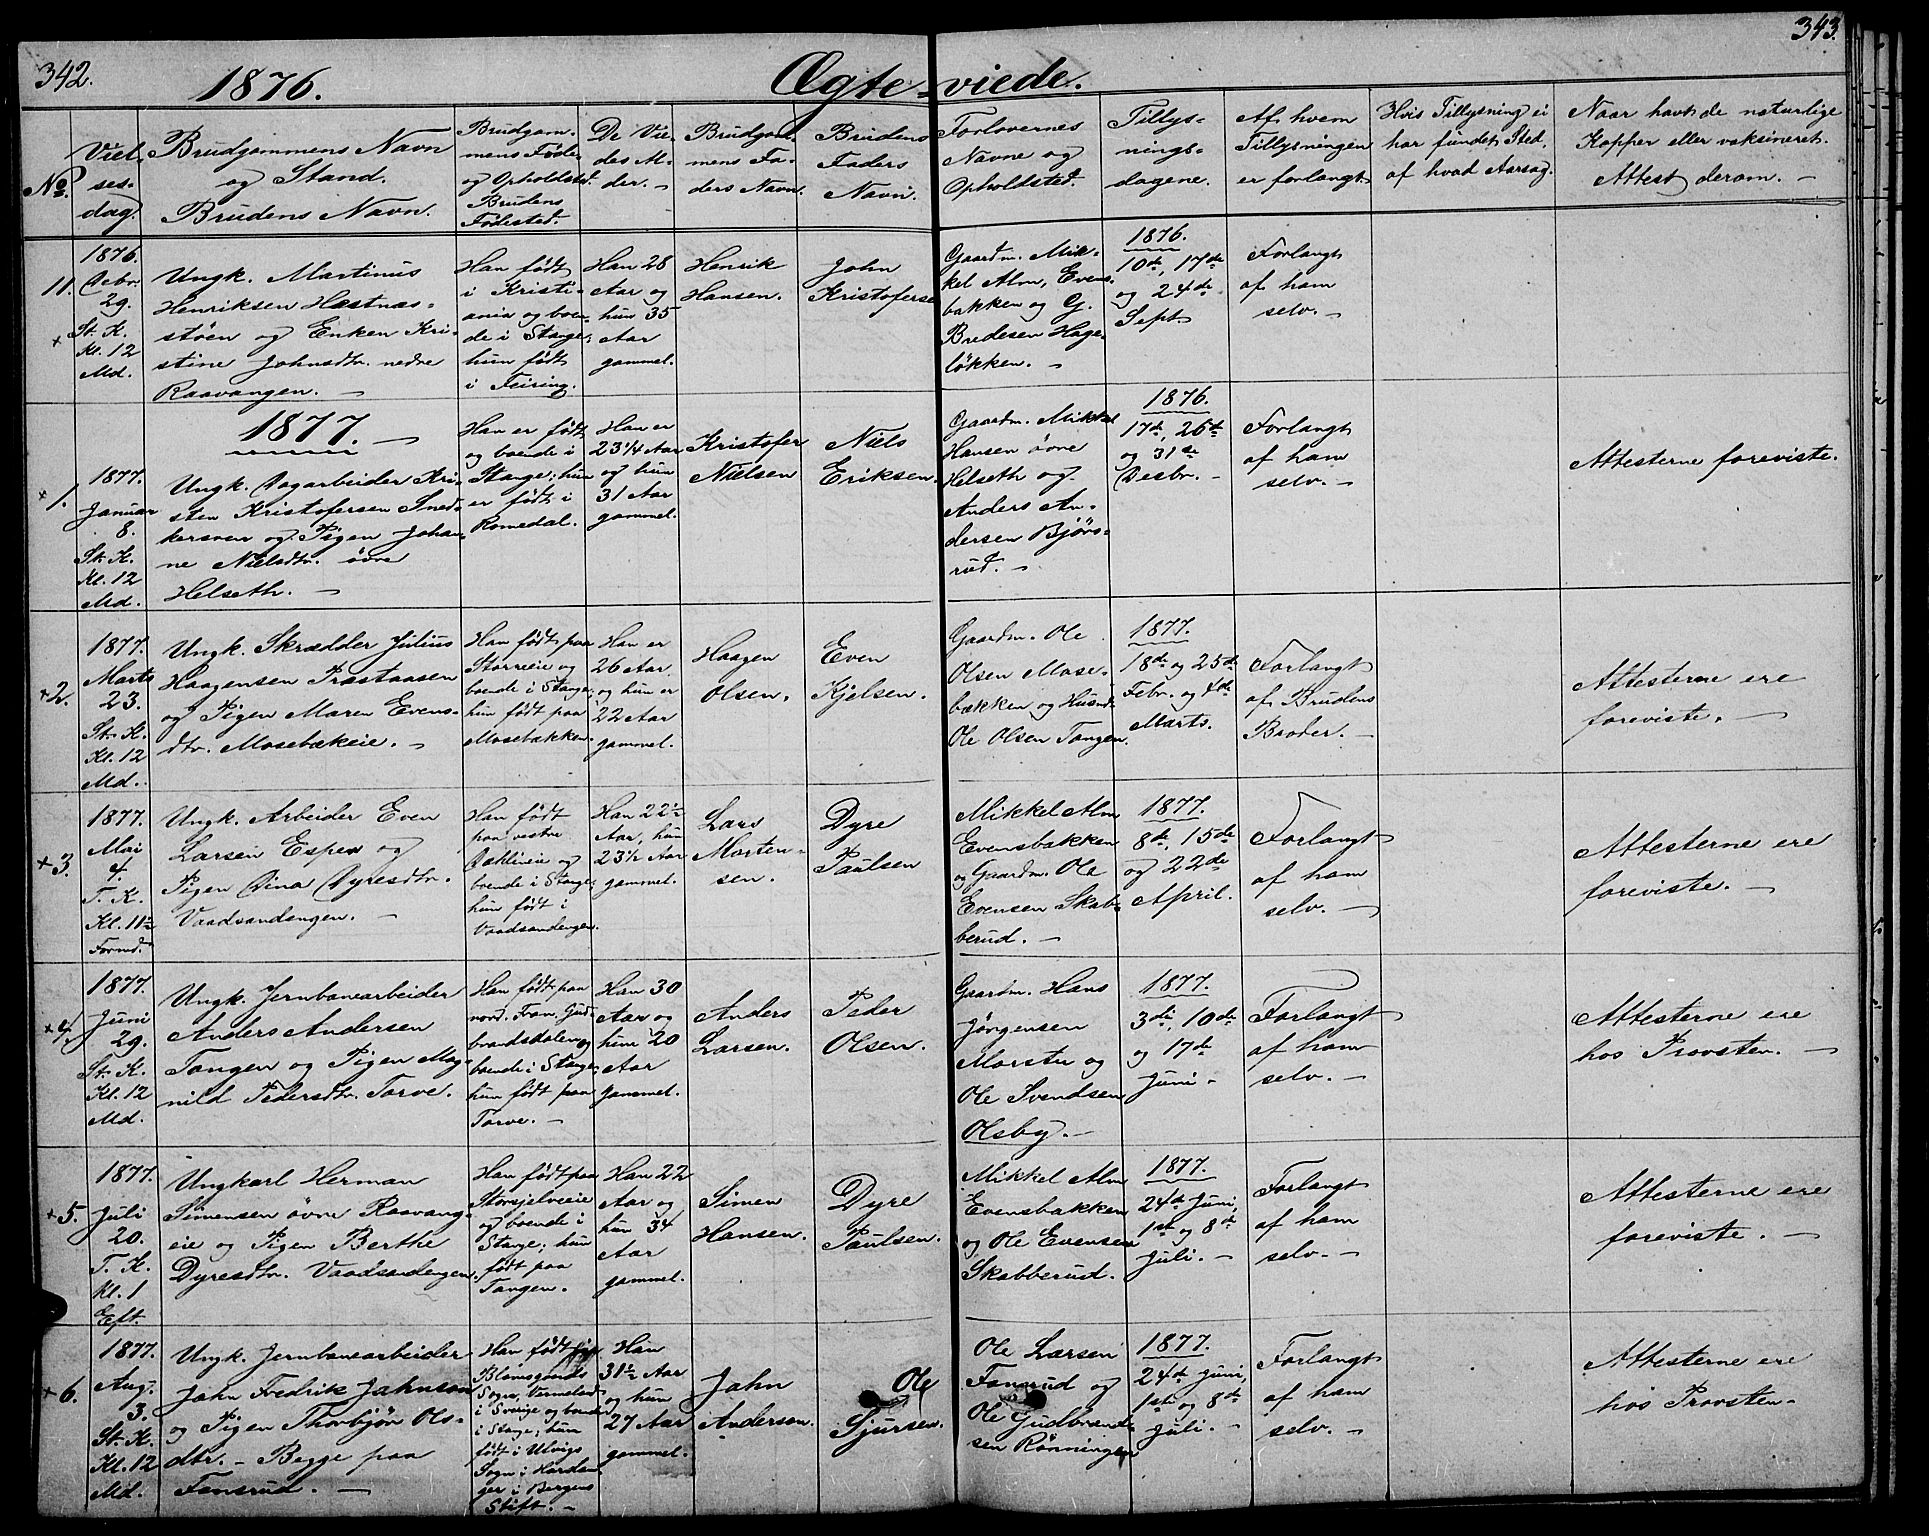 342.
1876.
Ægte-viede.
343.
No.
Viel-
ses-
dag.
Brudgommens Navn
og Stand.
Brudens Navn.
Brudgom-
mens Føde-
og Opholdsted.
Brudens
Fødested.
De Vie-
des Al-
der. -
Brudgom-
mens Fa-
ders Navn.
Brudens
Faders
Navn.
Forlovernes
Navne og
Opholdsted.
Tillys-
nings-
dagene.
Af hvem
Tillysningen
er forlangt.
Hvis Tillysning ei
har fundet Sted,
af hvad Aarsag.
Naar havt de naturlige
Kopper eller vaksineret.
Attest derom. -
11.
+
1876.
Debr.
29.
St. K.
Kl. 12
Md.
Ungk. Martinus
Henriksen Hæstnæs-
støen og Enken Kri-
stine Johnsdtr. nedre
Raavangen. -
Han født
i Kristi-
ania og boen-
de i Stange;
hun født
i Feiring.
Han 28
Aar og
hun 35
Aar
gammel.
Henrik
Hansen.
John
Kristoferse
Gaardm. Mik-
kel Alm, Evens-
bakken og G.
Bredesen Hage-
løkken. -
1876.
10de, 17de
og 24de
Sept
Forlangt
af ham
selv. -
1877. -
+ 1.
1877.
Januar
8.
St. K.
Kl. 12
Md.
Ungk. Dagarbeider Kri-
sten Kristofersen Sned-
kersveen og Pigen Johan-
ne Nielsdtr. øvre
Helseth. -
Han er født
og boende i
Stange; hun
er født i
Romedal.
Han er
23 1/4 Aar
og hun
31 Aar
gammel.
Kristofer
Nielsen
Niels
Eriksen.
Gaardm. Mikkel
Hansen øvre
Helseth og
Anders An-
dersen Bjørs-
rud. -
1876.
17de, 26de
og 31te
Desbr. -
Forlangt
af ham
selv. -
Attesterne foreviste.
+2.
1877.
Marts
23.
St. K.
Kl. 12
Md.
Ungk. Skrædder Julius
Haagensen Præstaasen
og Pigen Maren Evens-
dtr. Mosebækeie. -
Han født paa
Størreeie og
boende i Stange;
hun født paa
Mosebækken.
Han er
26 Aar,
og hun er
22 Aar
gammel.
Haagen
Olsen.
Even
Kjelsen.
Gaardm. Ole
Olsen Mose-
bækken og Husmd.
Ole Olsen Tangen.
1877.
18de og 25de
Febr. og 4de
Marts.
Forlangt
af Brudens
Broder. -
Attesterne ere
foreviste. -
+3.
1877.
Mai
4.
T. K.
Kl. 11½
Formd.
Ungk. Arbeider Even
Larsen Espen og
Pigen Dina Dyresdtr.
Vaadsandengen. -
Han født
paa vestre
Dæhlieie og
boende i Stange;
hun født i
Vaadsandengen.
Han 22½
Aar, hun
23½ Aar
gammel.
Lars
Morten-
sen.
Dyre
Paulsen
Mikkel Alm
Evensbakken
og Gaardm. Ole
Evensen Skab-
berud. -
1877.
8de, 15de
og 22de
April.
Forlangt
af ham
selv. -
Attesterne ere
foreviste. -
+4.
1877.
Juni
29.
St. K.
Kl. 12
Md.
Ungk. Jernbanearbeider
Anders Andersen
Tangen og Pigen Mag-
nild Pedersdtr. Torve.
Han født paa
nord. Fron, Gud-
brandsdalen og
boende i Stange;
hun født paa
Torve. -
Han 30
Aar og
hun 20
Aar
gammel.
Anders
Larsen.
Peder
Olsen.
Gaardm. Hans
Jørgensen
Marstu og
Ole Svendsen
Olsby. -
1877.
3die, 10de
og 17de
Juni -
Forlangt
af ham
selv. -
Attesterne ere
hos Provsten. -
+5.
1877.
Juli
20.
T. K.
Kl. 1
Eft.
Ungkarl Herman
Simensen øvre Raavang-
eie og Pigen Berthe
Dyresdtr. Vaadsandengen.
Han født paa
Storsjelveeie
og boende i
Stange; hun
født paa
Tangen.
Han 22
Aar og
hun 34
Aar
gammel.
Simen
Hansen.
Dyre
Paulsen.
Mikkel Alm
Evensbakken
og Ole Evensen
Skabberud.
1877.
24de Juni,
1ste og 8de
Juli. -
Forlangt
af ham
selv. -
Attesterne ere
foreviste. -
+ 6.
1877.
Aug.
3.
St. K.
Kl. 12
Md.
Ungk. Jernbanearbeider
John Fredrik Johnson
og Pigen Thorbjør Ols-
dtr. - Begge paa
Fonsrud. -
Han født i
Blomsgouds
Sogn, Vermeland
i Sverige og boende
i Stange; hun
født i Ulvigs
Sogn i Hardan-
ger i Bergens
Stift. -
Han
31½ Aar
og hun
27 Aar
gammel.
John
Anderson.
Ole
Sjursen.
Ole Larsen
Fonsrud og
Ole Gudbrand-
sen Rønningen
1877.
24de Juni,
1ste og 8de
Juli. -
Forlangt
af ham
selv. -
Attesterne ere
hos Provsten -